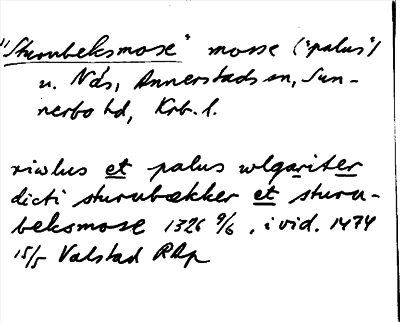 "Sturubeksmose" mosse ("palus")
v. Näs, Annerstads sn, Sun-
nerbo hd, Krb. l.
riwlus et palus wlgariter
dicti sturubækker et sturu-
beksmose 1326 9/6, i vid. 1474
15/5 Valstad RAp